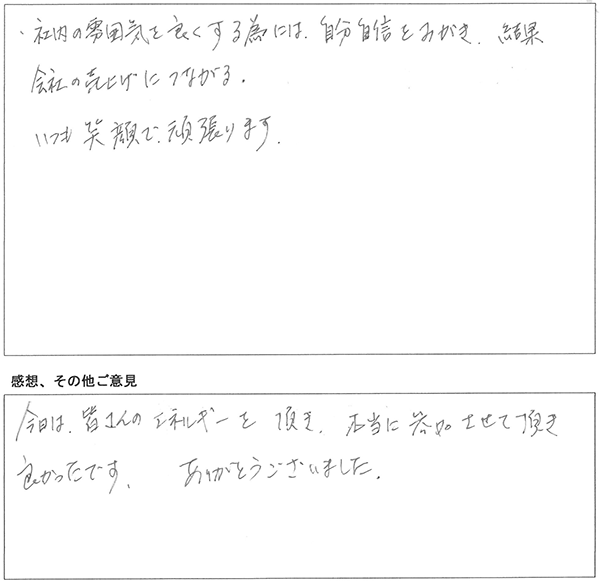 ・社内の雰囲気を良くする為には、自分自信をみがき、結果
会社の売上げにつながる。
いつも笑顔で、頑張ります。
感想、その他ご意見
今日は、皆さんのエネルギーを頂き、本当に参加させて頂き
良かったです。ありがとうございました。